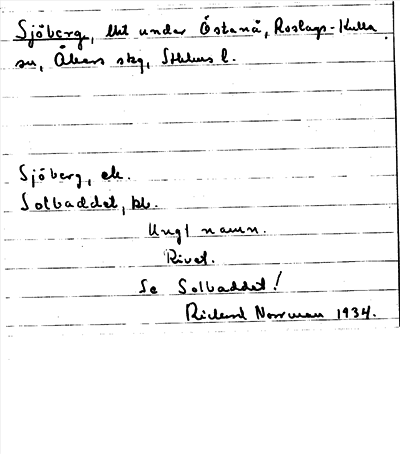 Sjöberg, lht under Östanå, Roslags-Kulla
sn, Åkers skg, Sthlms l.
Sjöberg, ek.
Solbaddet, kb.
Ungt namn.
Rivet.
Se Solbaddet!
Rickard Norrman 1934.